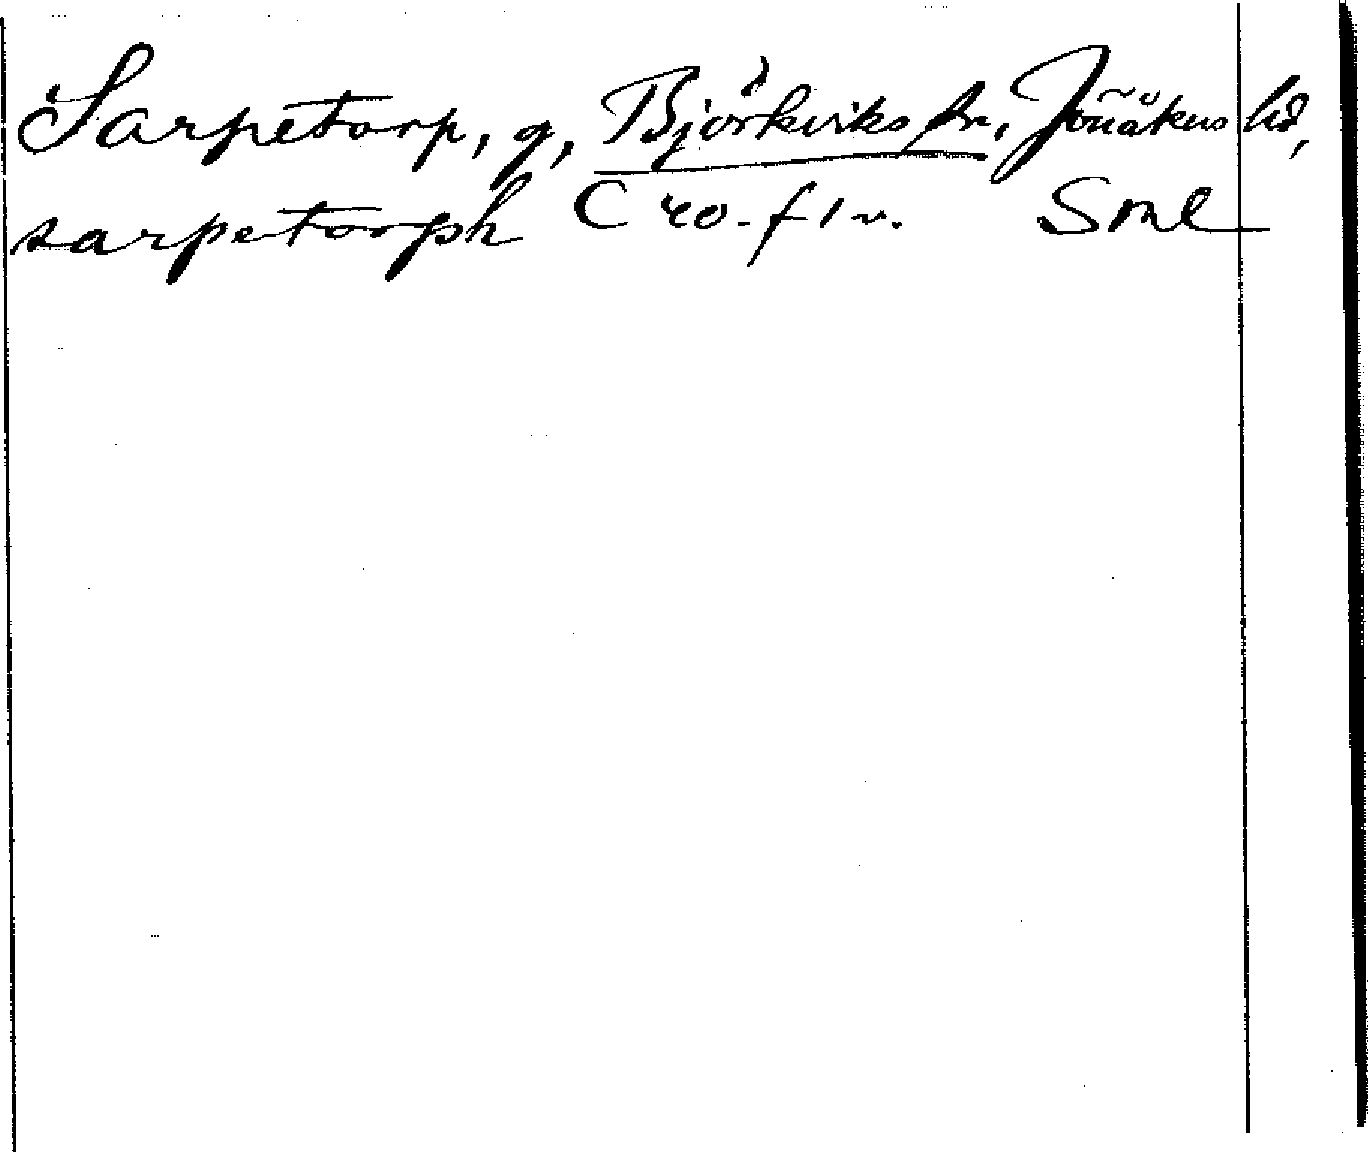 Sarpetorp, g, Björkviks sn, Jönåkers hd,
sarpetorph C 40. f 1 v. Sml